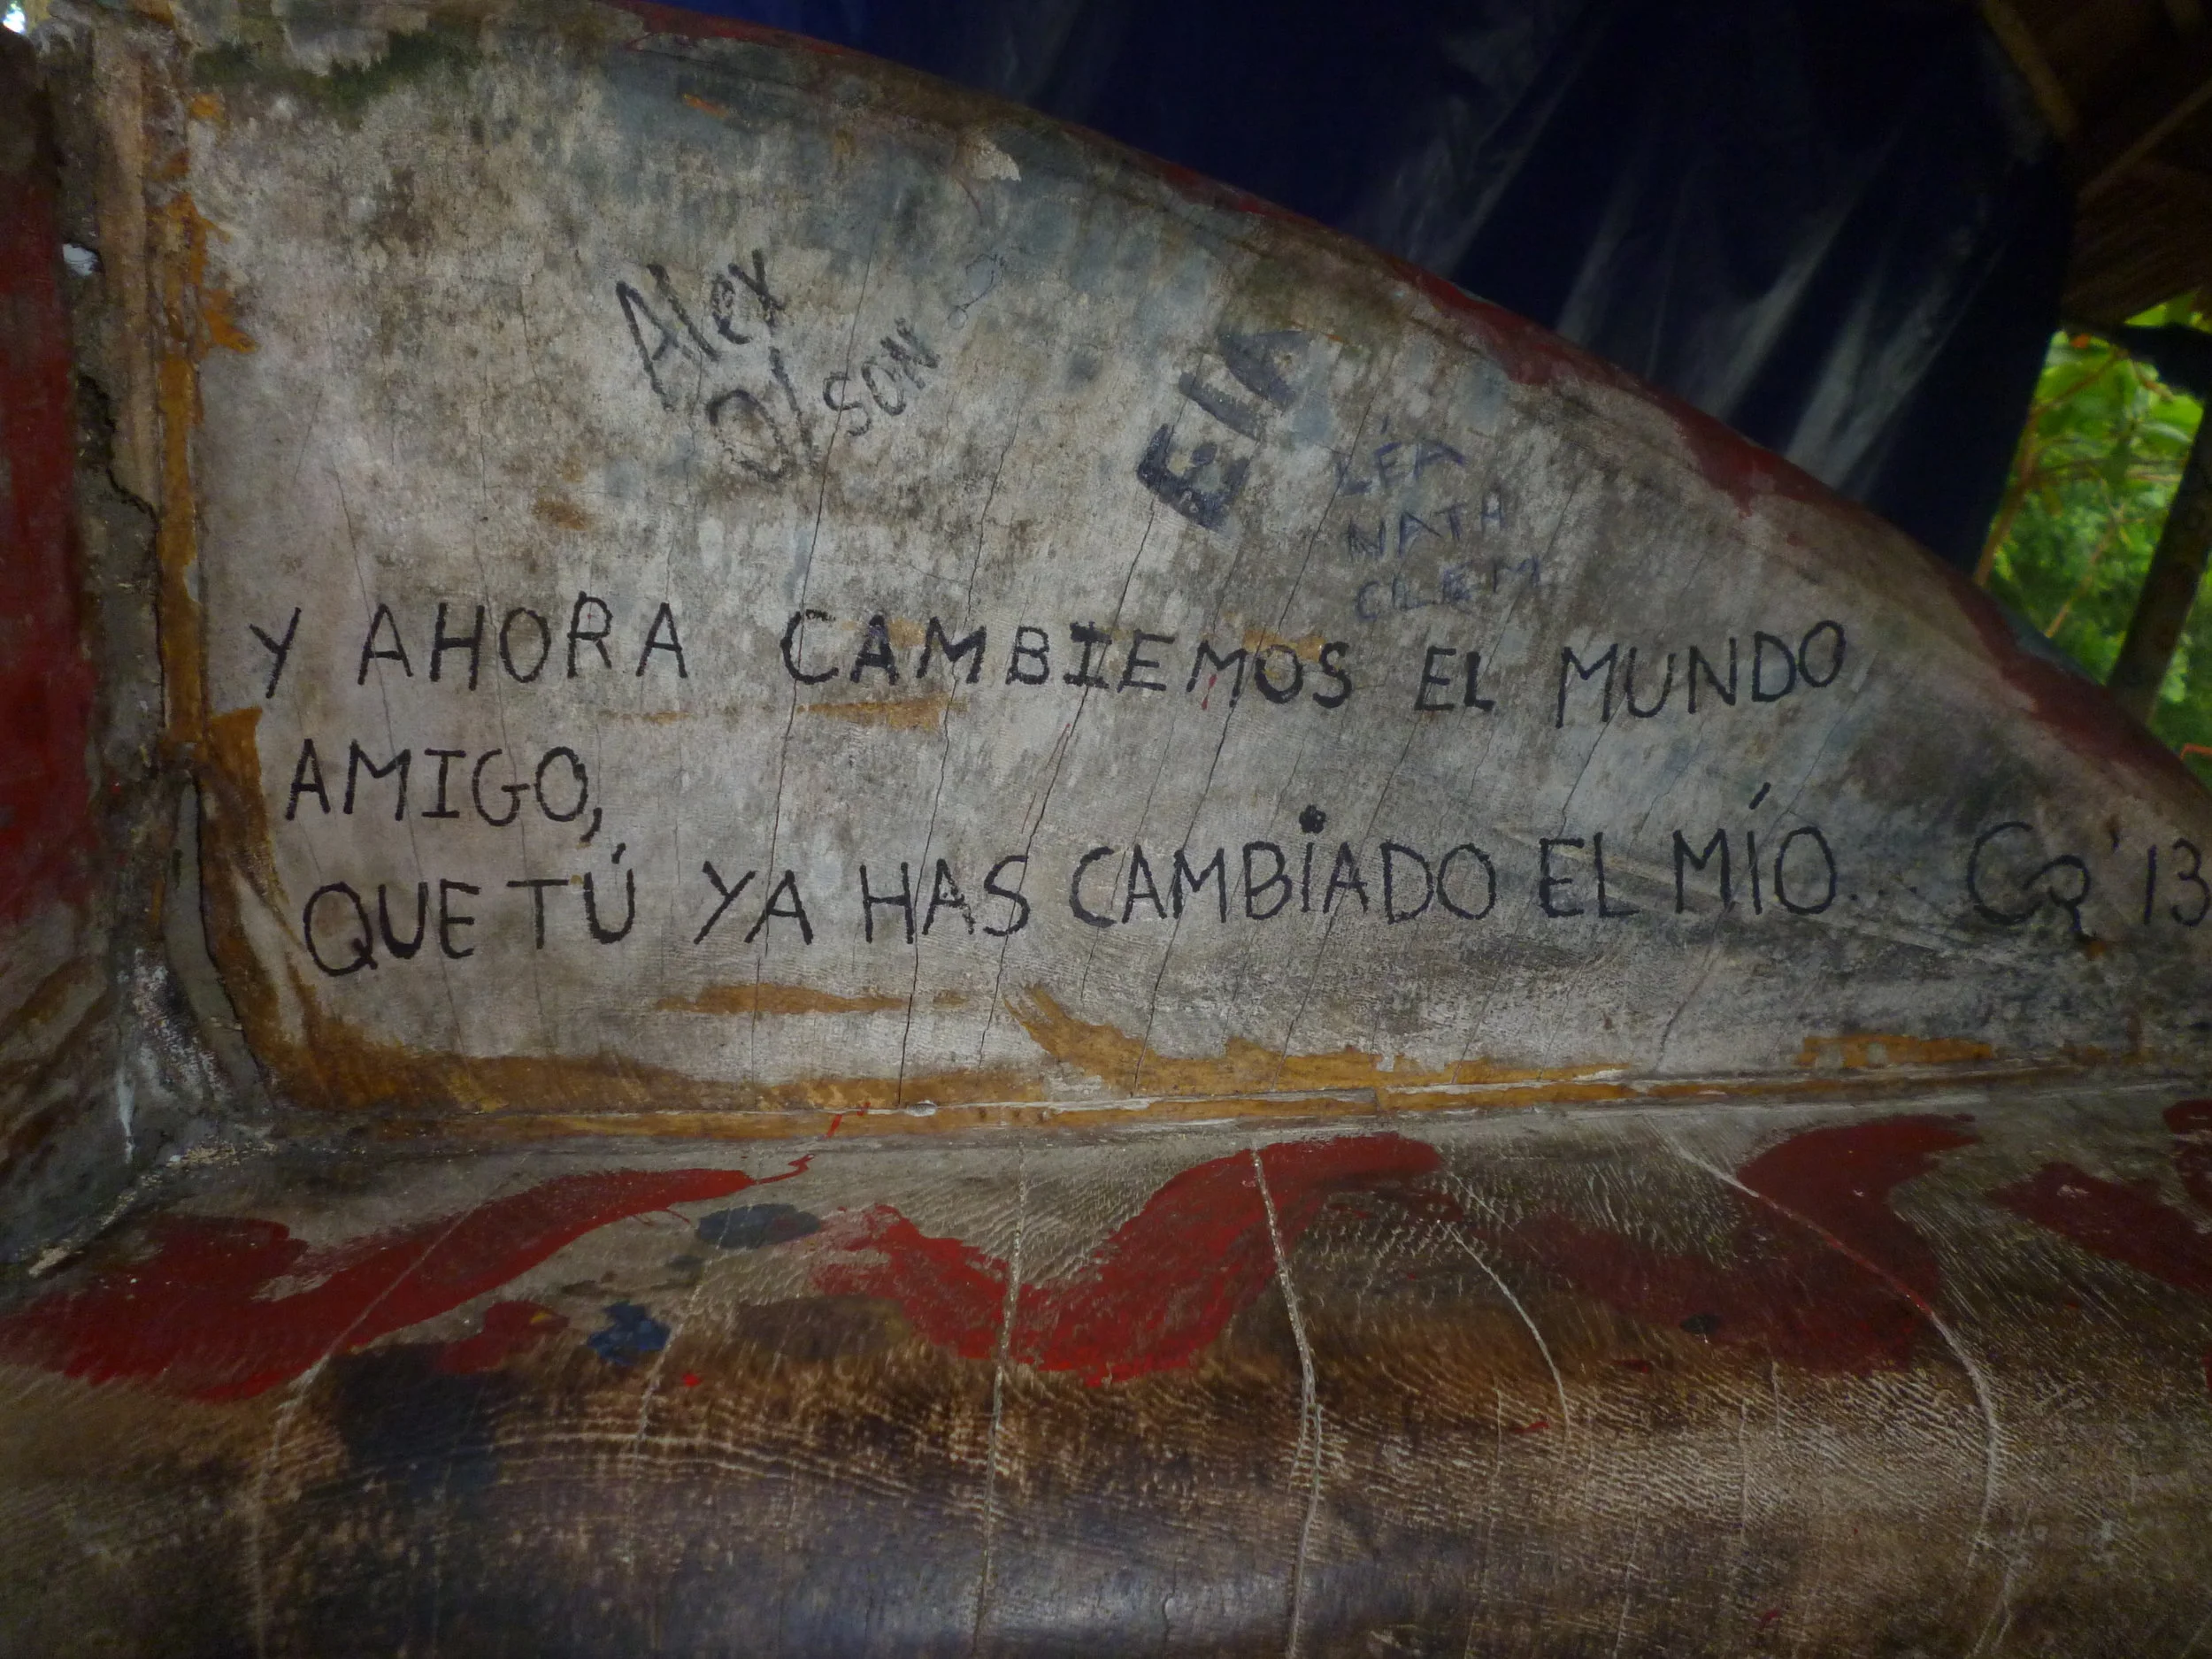 Alex
Olson
EIA
LÉA
NATH
CLEM
Y AHORA CAMBIEMOS EL MUNDO
AMIGO,
QUE TÚ YA HAS CAMBIADO EL MÍO... CR '13